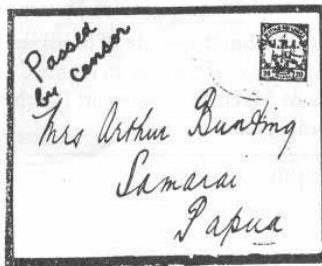 Passed
by censor
G.R.I.
Mrs Arthur Bunting
Samarai
Papua